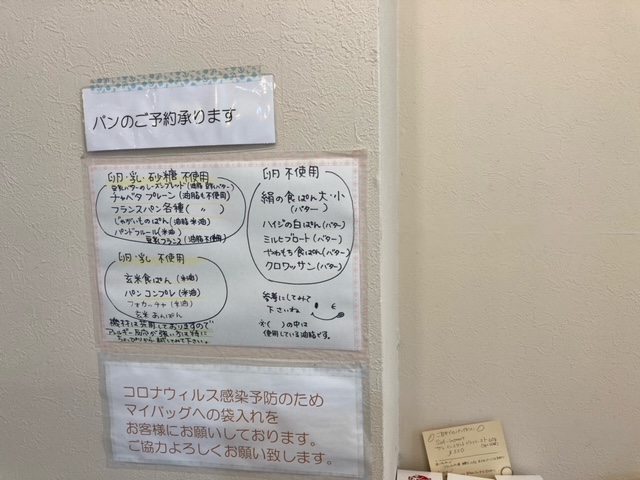 パンのご予約承ります
卵・乳・砂糖 不使用
豆乳バターのレーズンブレッド(油脂 豆乳バター)
チャバタ プレーン(油脂も不使用)
フランスパン各種( 〃 )
じゃがいものぱん(油脂 米油)
パンドフルール(米油)
豆乳フランス(油脂不使用)
卵・乳 不使用
玄米食ぱん(米油)
パンコンプレ(米油)
フォカッチャ(米油)
玄米あんぱん
機材は共用しておりますので
アレルギー反応が強い方は特に
卵 不使用
絹の食ぱん 大・小
(バター)
ハイジの白ぱん(バター)
ミルヒブロート(バター)
やわもち食ぱん(バター)
クロワッサン(バター)
参考にしてみて
下さいね
※( )の中は
使用している油脂です。
コロナウィルス感染予防のため
マイバッグへの袋入れを
お客様にお願いしております。
ご協力よろしくお願い致します。